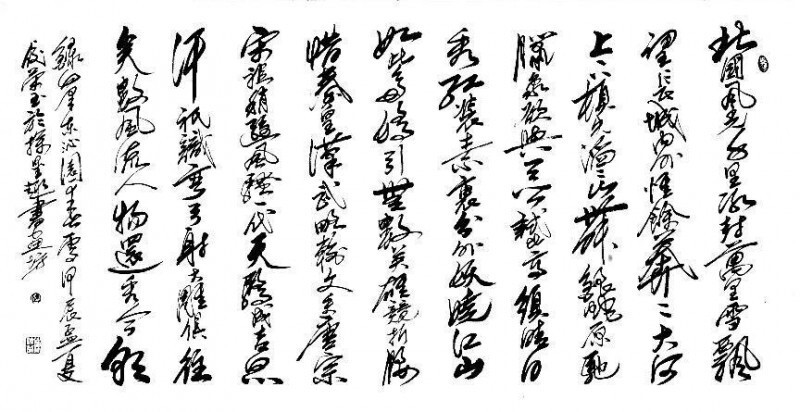 北國風光千里冰封萬里雪飄
望長城內外惟餘莽莽大河
上下頓失滔滔山舞銀蛇原馳
臘象欲與天公試比高須晴日
看紅裝素裹分外妖嬈江山
如此多嬌引無數英雄競折腰
惜秦皇漢武略輸文采唐宗
宋祖稍遜風騷一代天驕成吉思
汗祇識彎弓射大雕俱往
矣數風流人物還看今朝
錄毛澤東沁園春雪甲辰孟夏
於書